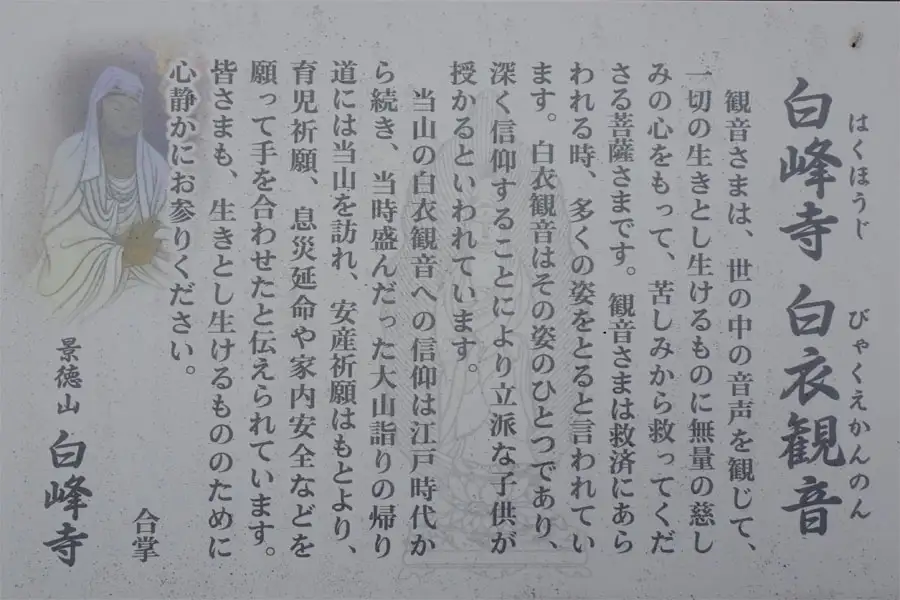 はくほうじ　びゃくえかんのん
白峰寺 白衣観音
観音さまは、世の中の音声を観じて、
一切の生きとし生けるものに無量の慈し
みの心をもって、苦しみから救ってくだ
さる菩薩さまです。観音さまは救済にあら
われる時、多くの姿をとると言われてい
ます。白衣観音はその姿のひとつであり、
深く信仰することにより立派な子供が
授かるといわれています。
当山の白衣観音への信仰は江戸時代か
ら続き、当時盛んだった大山詣りの帰り
道には当山を訪れ、安産祈願はもとより、
育児祈願、息災延命や家内安全などを
願って手を合わせたと伝えられています。
皆さまも、生きとし生けるもののために
心静かにお参りください。
合掌
景徳山 白峰寺